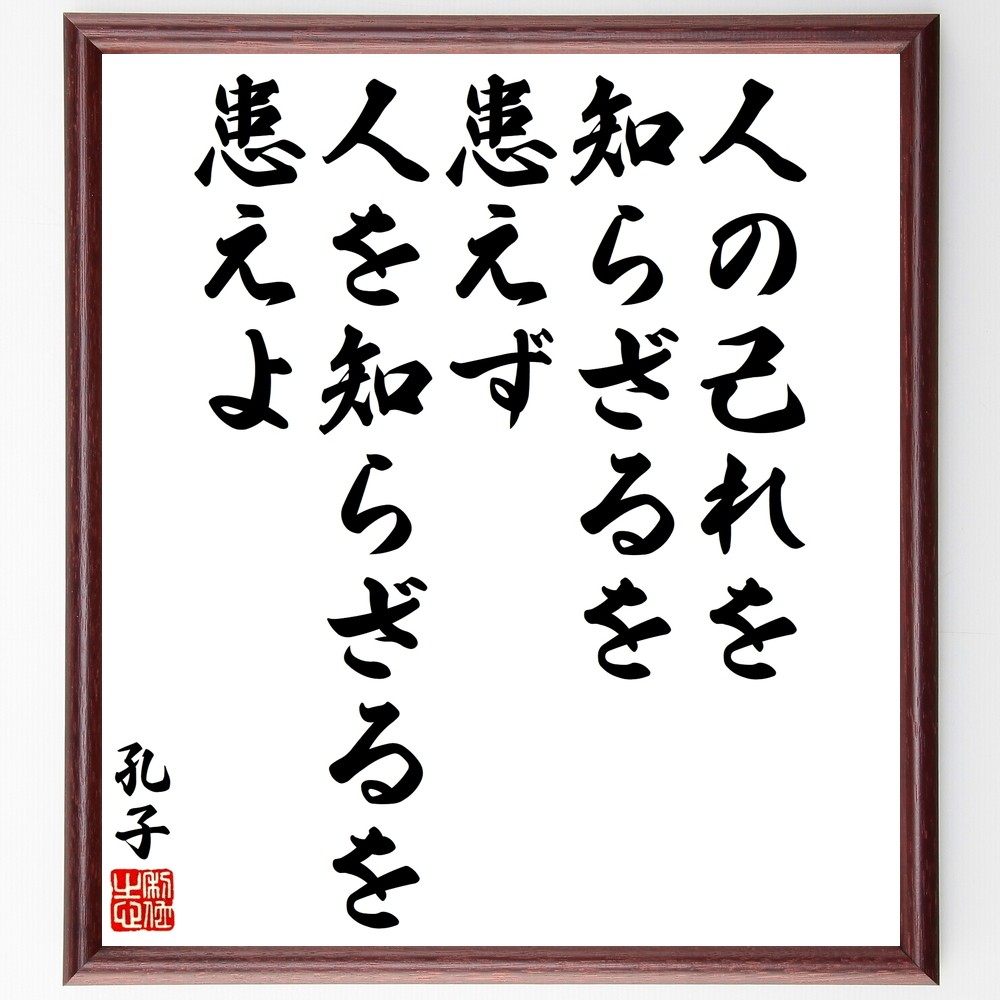 人の己れを
知らざるを
患えず
人を知らざるを
患えよ
孔子